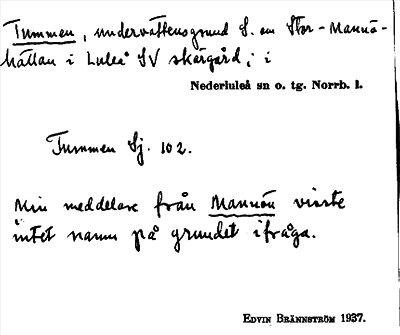 Tummen, undervattensgrund S. om Stor-Mannö-
hällan i Luleå SV skärgård; i
Nederluleå sn o. tg. Norrb. l.
Tummen Sj. 102.
Min meddelare från Mannön visste
intet namn på grundet ifråga.
EDVIN BRÄNNSTRÖM 1937.